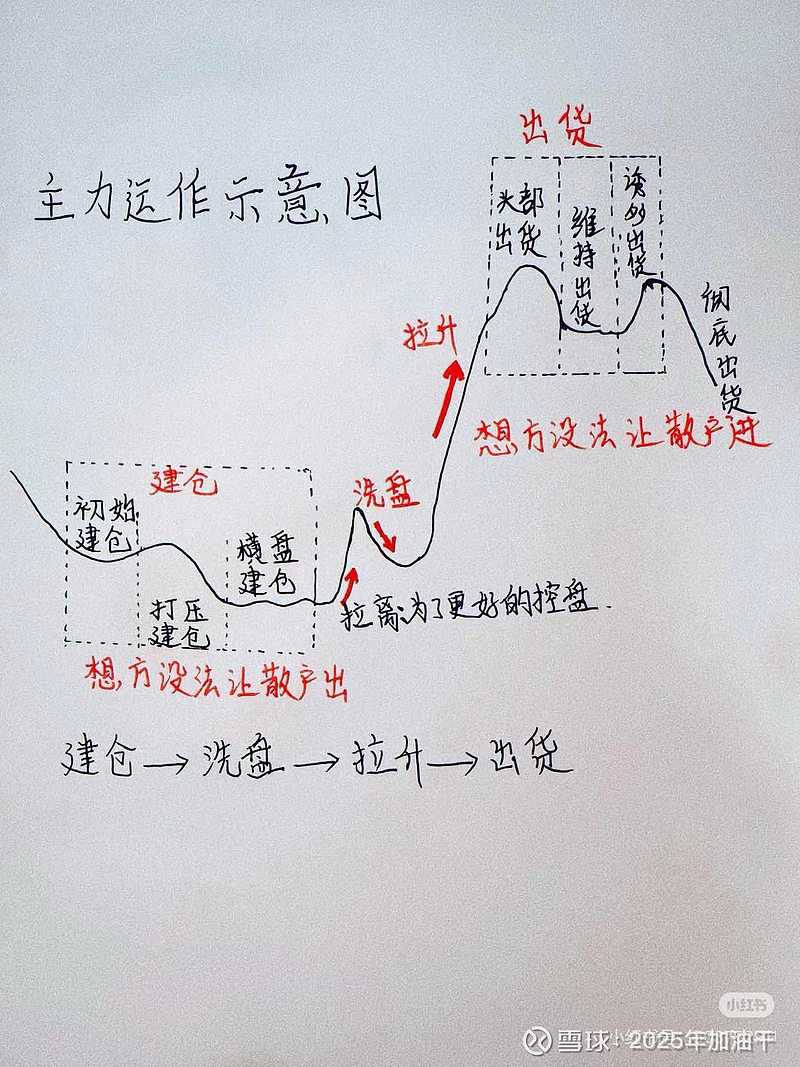 出货
主力运作示意图
头部
出货
维持出货
诱多出货
彻底出货
拉升
想方设法让散户进
建仓
初始
建仓
洗盘
横盘
建仓
打压
建仓
拉离:为了更好的控盘.
想方设法让散户出
建仓→洗盘→拉升→出货
小红书
雪球:2025年加油干